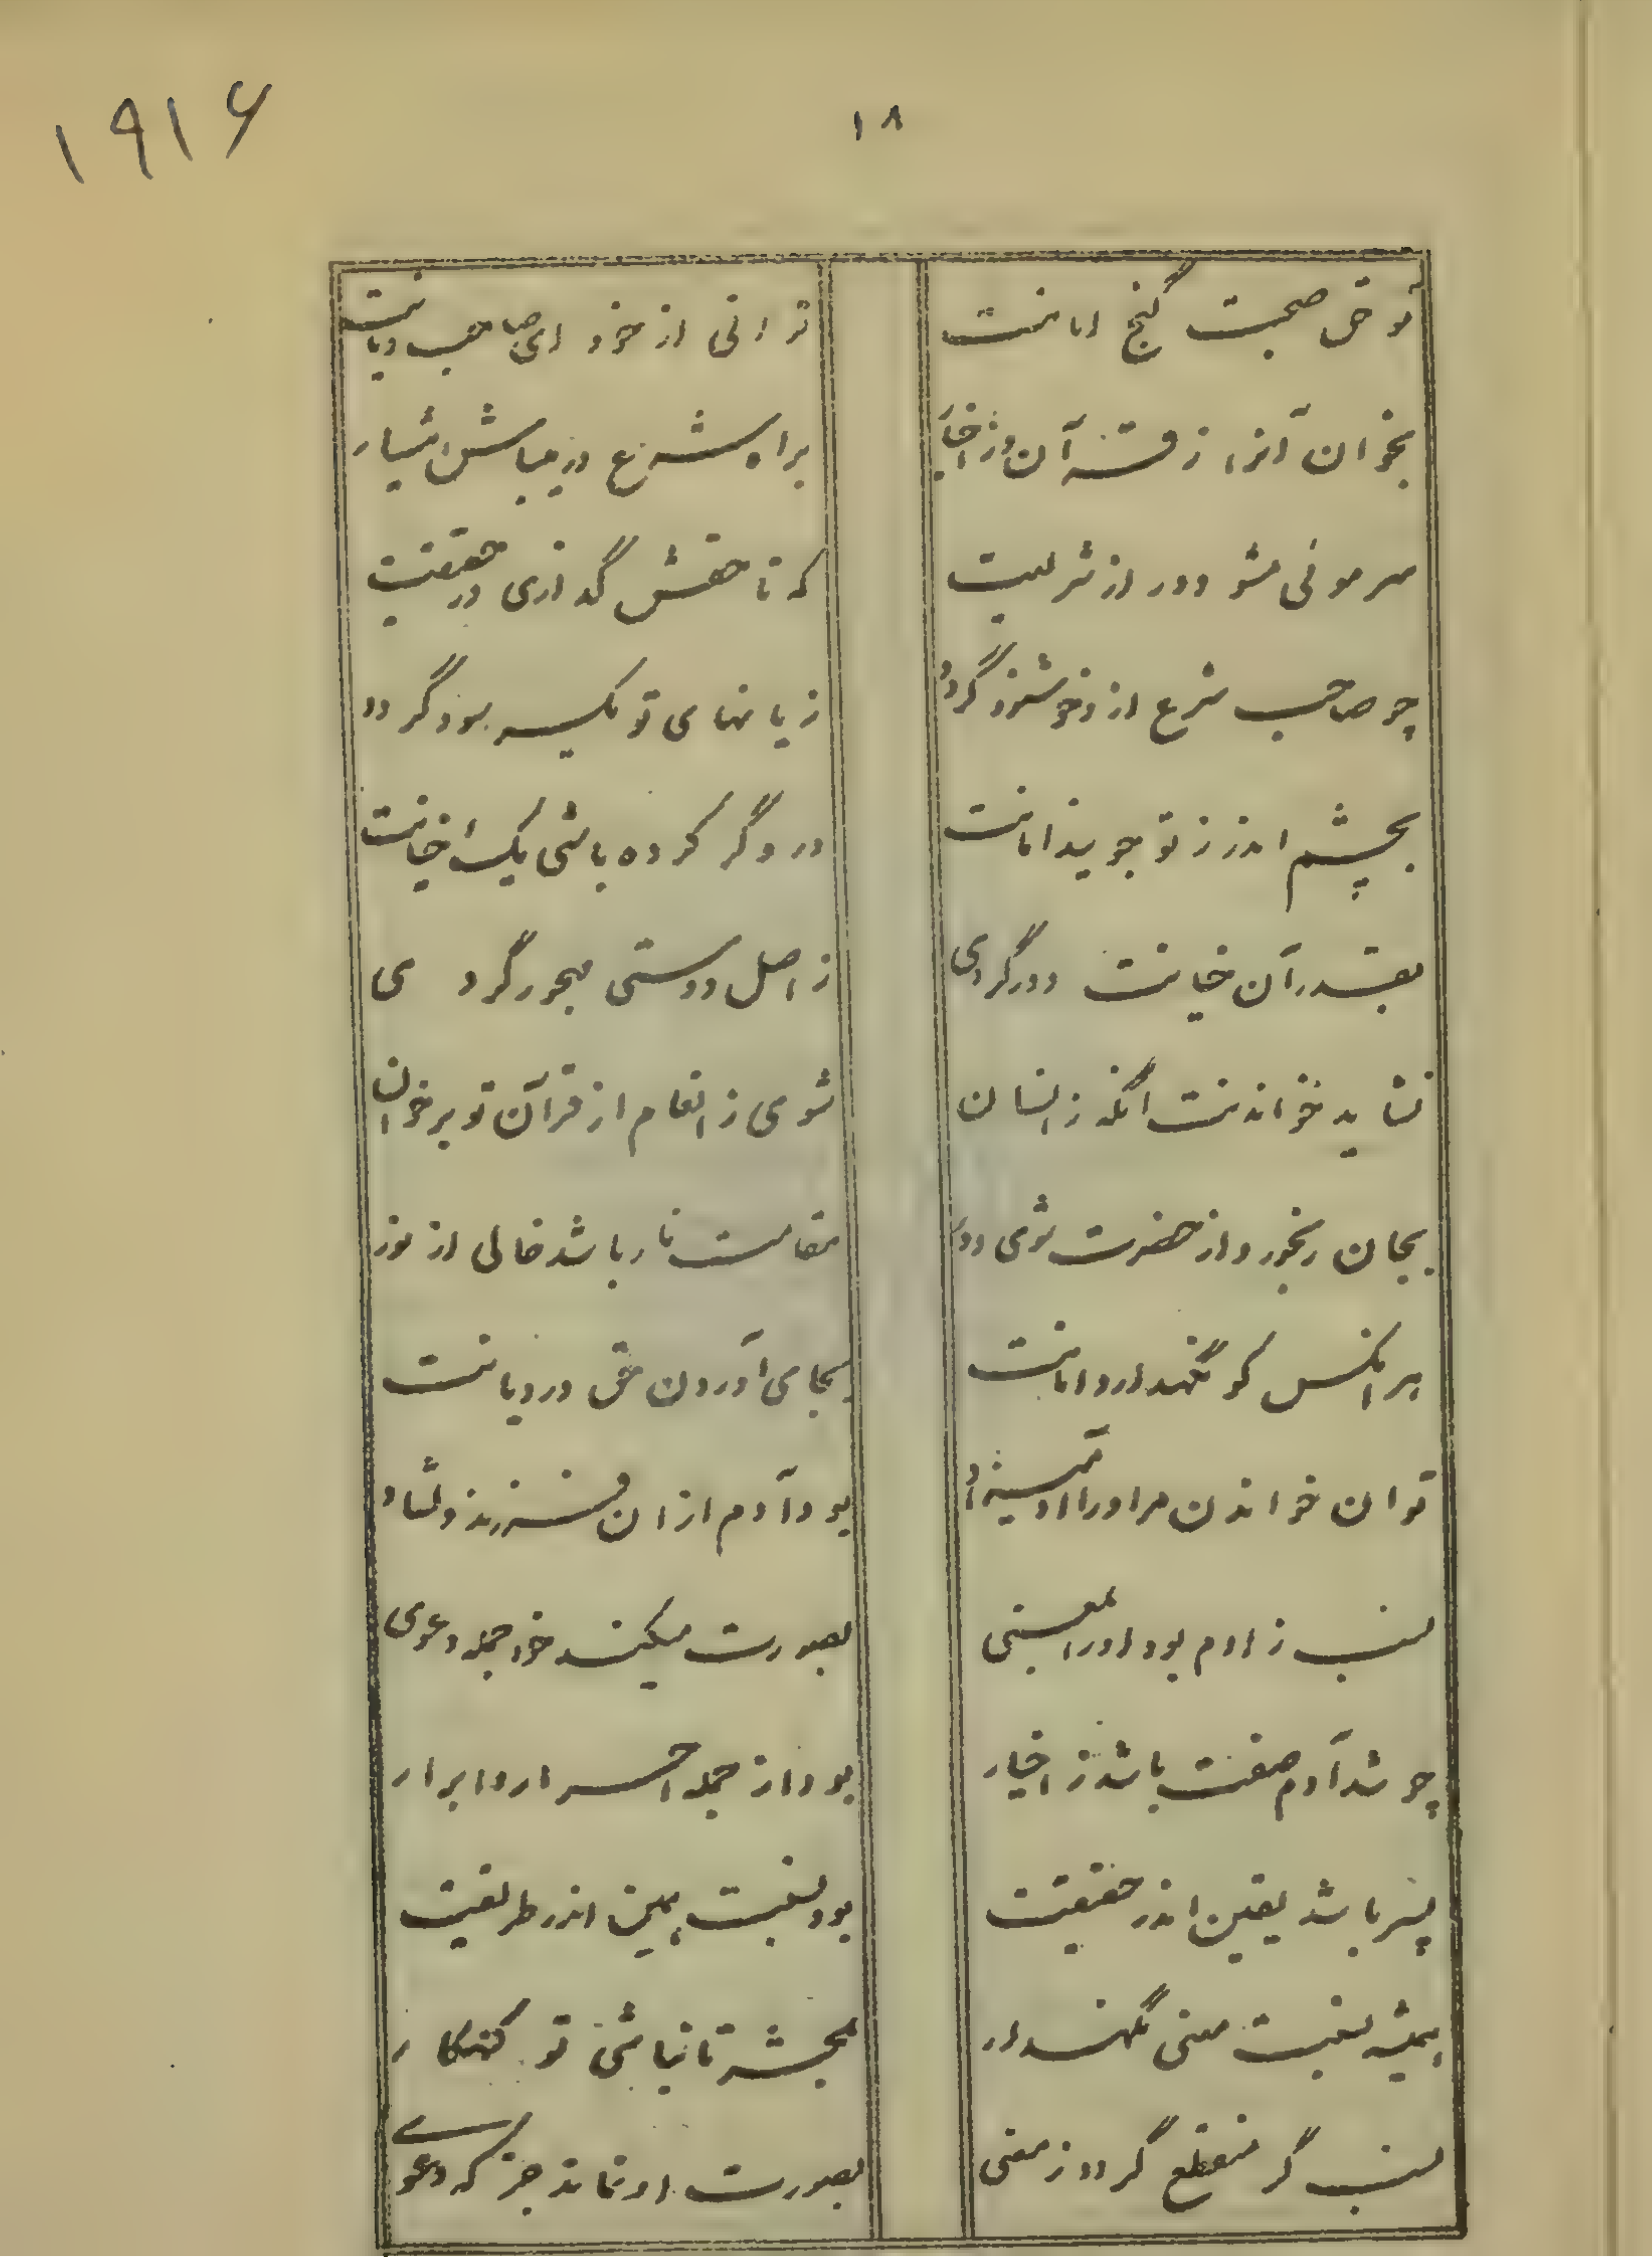 ۱۹۱۶
۱۸
تو حق صحبت گنج امانت توانی از خود ای صاحب دیانت
بخوان آنرا ز قرآن وز اخبار براه شرع در میباش هشیار
سر موئی مشو دور از شریعت که تا حقش گذاری در حقیقت
چو صاحب شرع از تو خوشنود گردد زیانهای تو یکسر سود گردد
بحشر اندر ز تو جویند امانت درو گر کرده باشی یک خیانت
بقدر آن خیانت دور گردی ز اصل دوستی مهجور گردی
نشاید خواندنت آنگه ز انسان شوی ز انعام از قرآن تو برخوان
بجان رنجور و از حضرت شوی دور مقامت نار باشد خالی از نور
هر آنکس کو نگهدارد امانت بجای آوردن حق در دیانت
توان خواندن مر او را آدمیزاد بود آدم از آن فرزند دلشاد
نسب ز آدم بود او را بمعنی بصورت میکند خود جمله دعوی
چو شد آدم صفت باشد ز اخیار بود از جمله احرار و ابرار
پسر باشد یقین اندر حقیقت بود نسبت همین اندر طریقت
همیشه نسبت معنی نگهدار بحشر تا نباشی تو گنهکار
نسب گر منقطع گردد ز معنی بصورت او نماند جز که دعوی